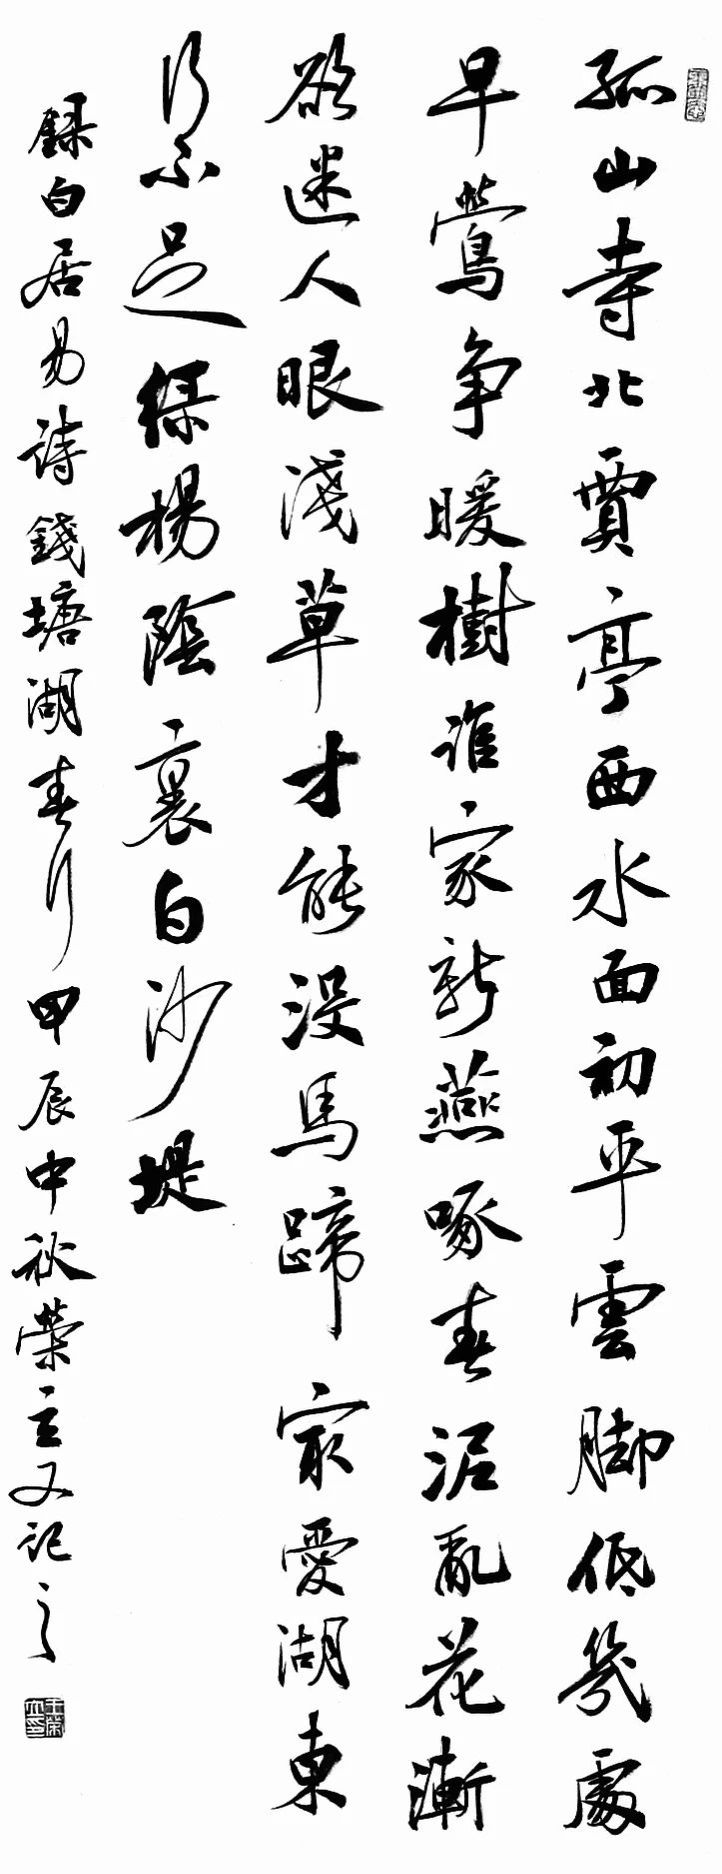 孤山寺北賈亭西水面初平雲脚低幾處
早鶯争暖樹誰家新燕啄春泥亂花漸
欲迷人眼淺草才能没馬蹄最愛湖東
行不足綠楊陰裏白沙堤
録白居易詩錢塘湖春行甲辰中秋榮立又記之